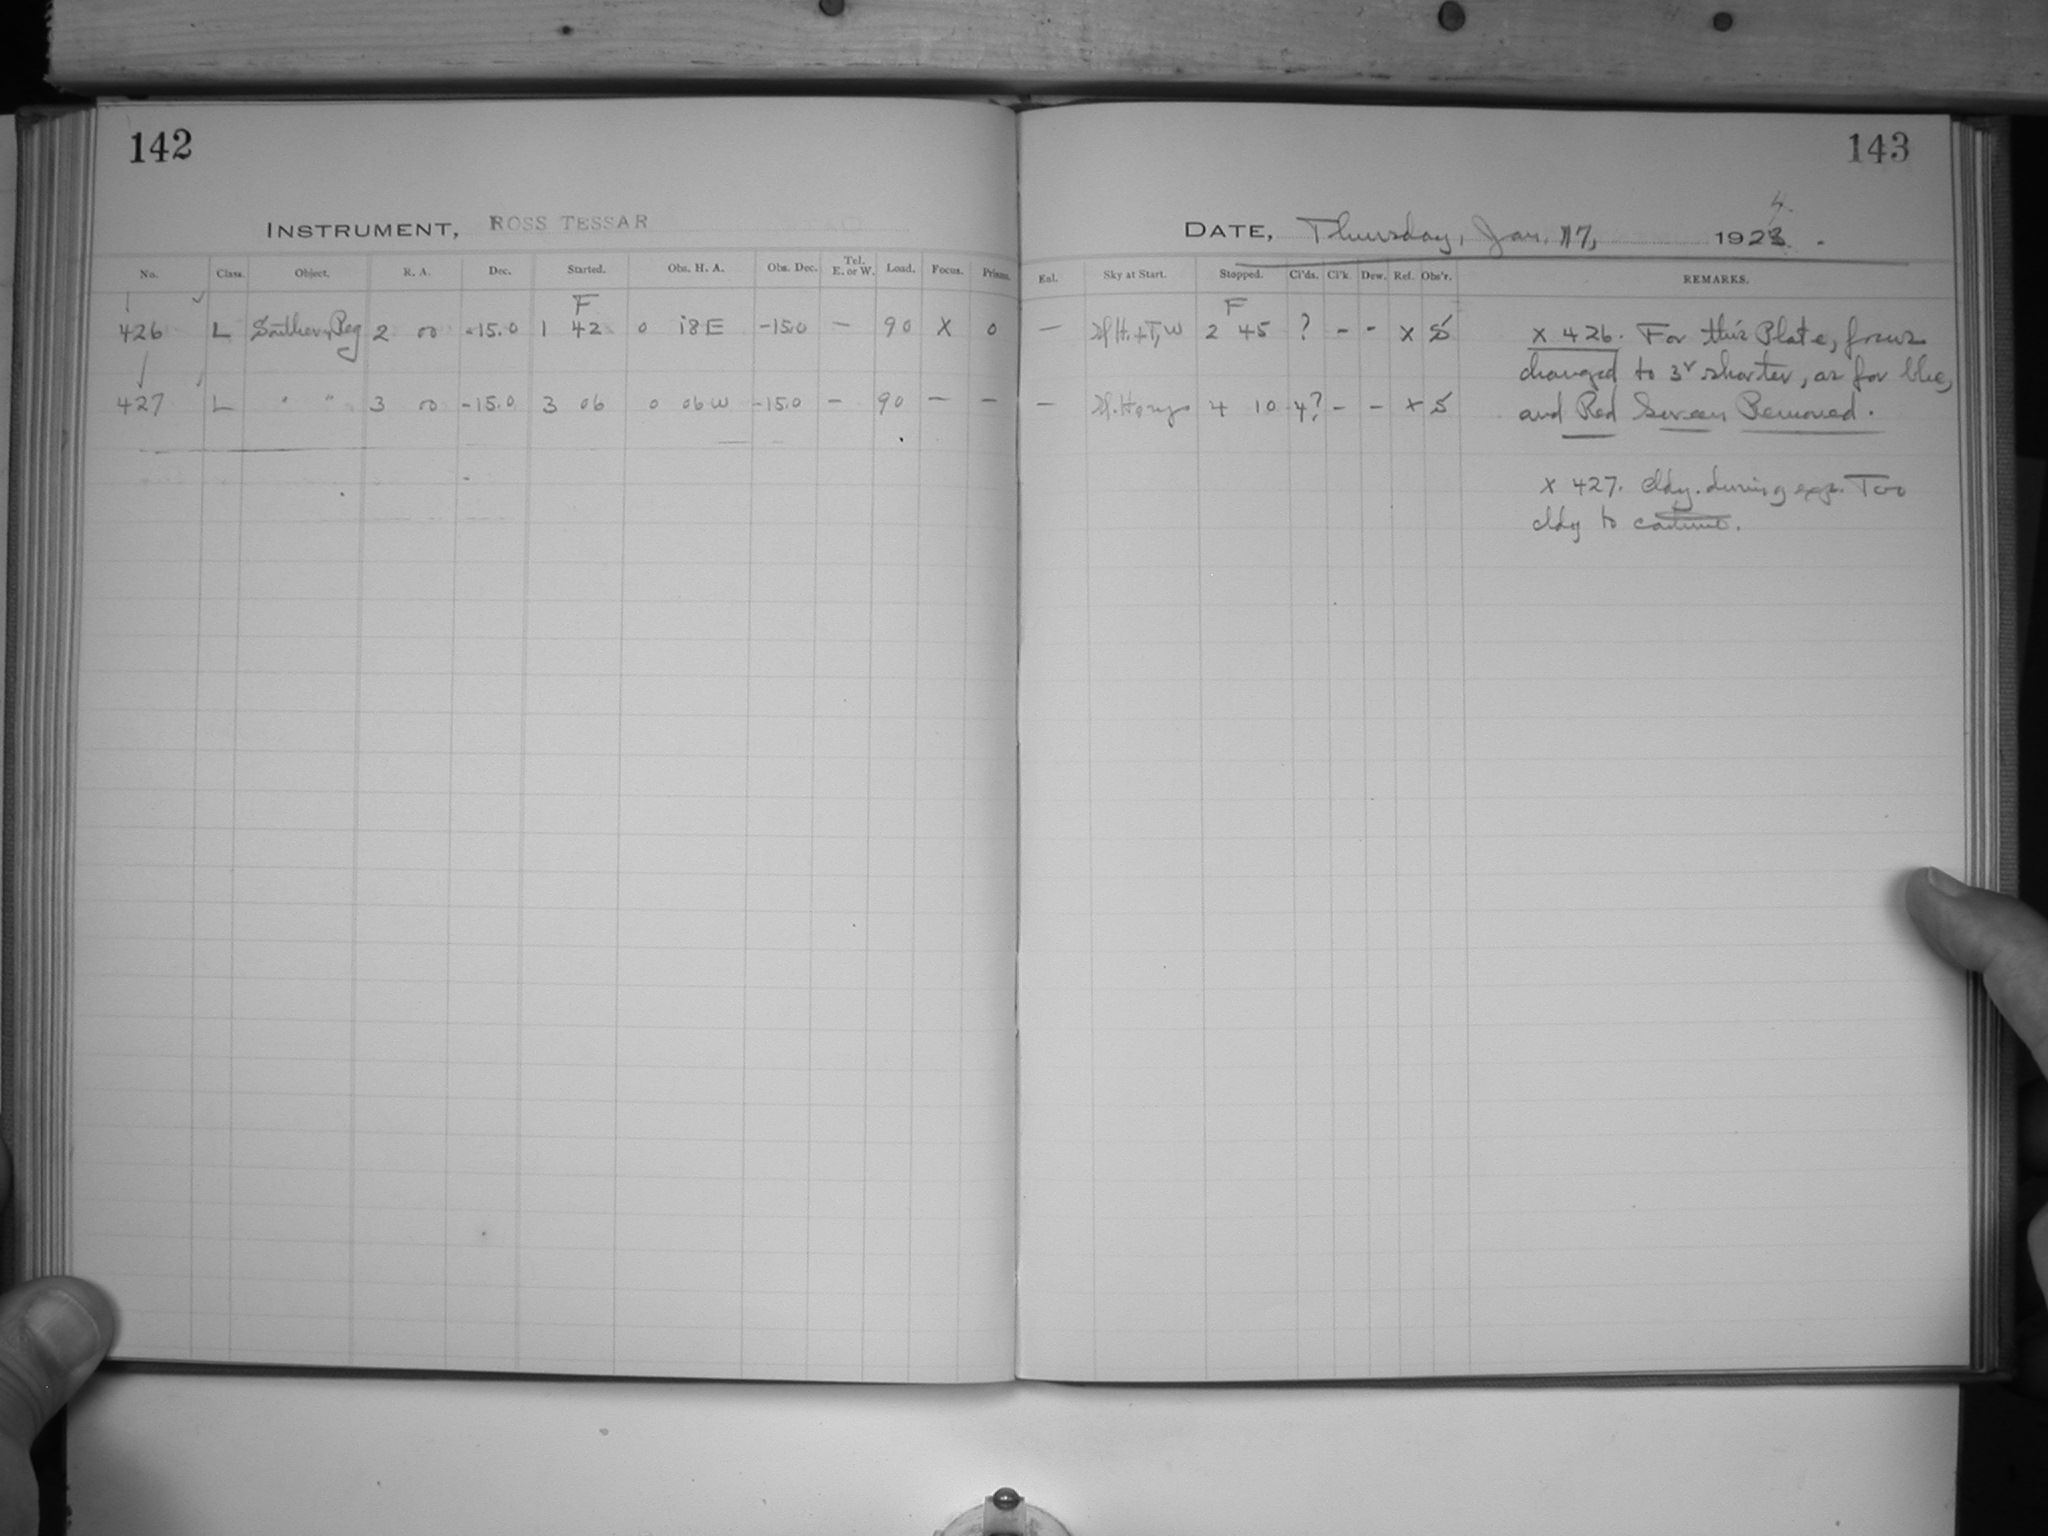 142
143
INSTRUMENT, ROSS TESSAR
DATE, Thursday, Jan. 17, 1923. 4.
No. Class. Object. R. A. Dec. Started. Obs. H. A. Obs. Dec. Tel. E. or W. Load. Focus. Prism.
Enl. Sky at Start. Stopped. Cl'ds. Cl'k. Dew. Ref. Obs'r. REMARKS.
F
F
426 L Southern Reg 2 00 -15.0 1 42 0 18 E -15.0 — 90 X 0
— H. + T, W 2 45 ? - - X S
X 426. For this Plate, focus
changed to 3r shorter, as for blue,
and Red Screen Removed.
427 L " " 3 00 -15.0 3 06 0 06 W -15.0 — 90 — —
— 4 10 4? - - X S
X 427. cldy. during exp. Too
cldy to continue.